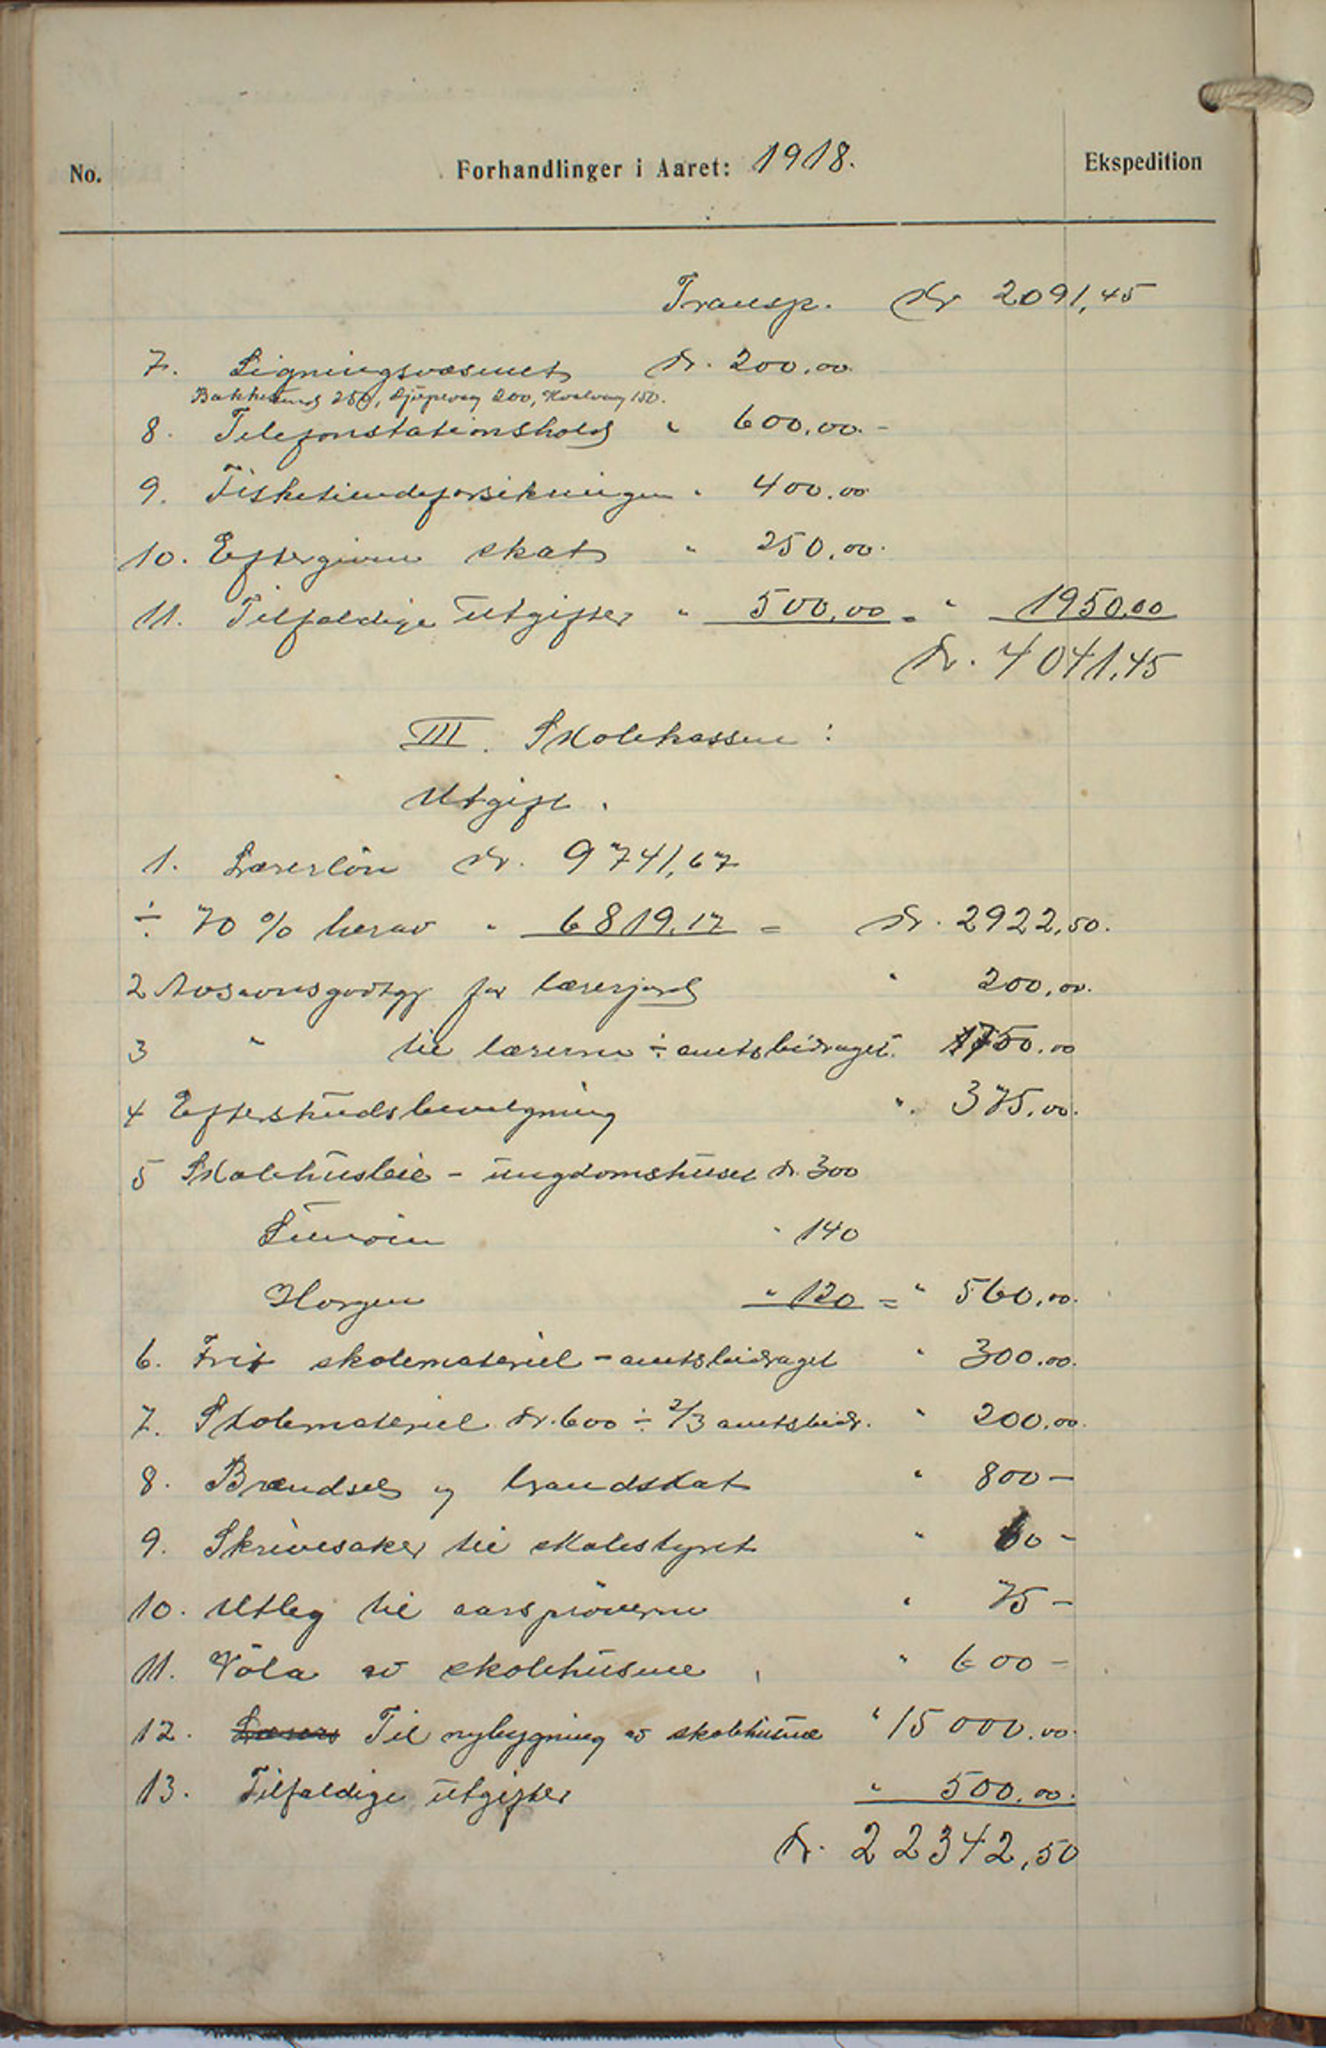 No. Forhandlinger i Aaret: 1918. Ekspedition
Transp. Kr 2091,45
7. Ligningsvæsenet Kr. 200.00
250, Djupevaag 200, Kvalvaag 150.
8. Telefonstationshold " 600.00.-
9. " 400.00
10. Eftergiven skat " 250.00.
11. Tilfældige utgifter " 500.00 = " 1950.00
Kr. 4041,45
III. Skolekassen :
Utgift.
1. Lærerlön Kr. 9741,67
÷ 70 % herav " 6819.17 = Kr. 2922,50.
2 for lærerjord " 200.00.
3 " til lærerne ÷ amtsbidraget. 750.00
4 ". 375.00.
5 Skolehusleie - ungdomshuset Kr. 300
" 140
Horgen " 120 = " 560.00.
6. Frit skolemateriel - amtsbidraget " 300.00.
7. Skolemateriel Kr. 600 ÷ 2/3 amtsbidr. " 200.00.
8. Brændsel og brandskat " 800 -
9. Skrivesaker til skolestyret " 60 -
10. Utlæg til aarsprøverne " 75 -
11. Völa av skolehusene " 600 -
12. Til nybygning av skolehusene " 15000.00.
13. Tilfældige utgifter " 500.00.
Kr. 22342,50